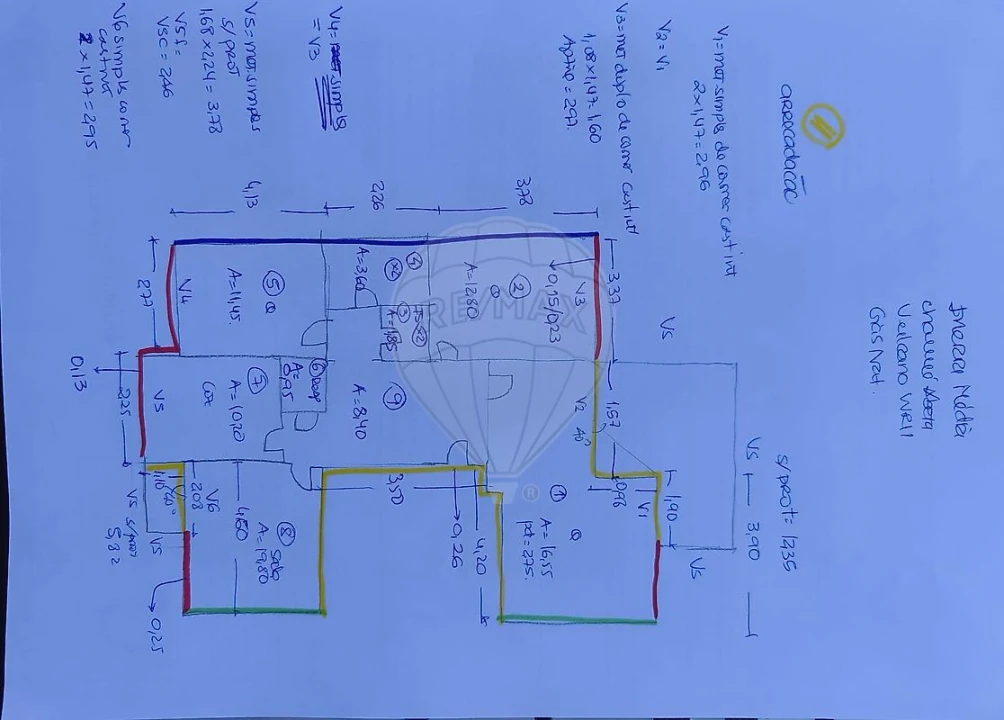 arrecadação
V1= mot simples de correr cast int
2x1,47=2,96
V2=V1
V3=mot duplo de correr cast int
1,08x1,47=1,60
V4=
simples
= V3
V5=mot simples
s/ prot
1,68x2,24=3,78
V5f=
V5C=2,46
V6 simples correr
cast int
2x1,47=2,95
Inercia Média
Gás Nat.
s/prot= 12,35
3,78
2,26
4,13
3,37
V3
0,15/0,23
②
A=12,80
④
A=3,60
③
A=1,85
⑤
A=11,45.
V4
2,77
0,13
2,25
V5
⑦
Coz
A=10,20
⑥
A=
0,95
⑨
A=8,40
V2
40°
1,57
V5
V5
3,90
V5
1,90
V1
0,98
①
A=16,55
pd=2,75.
3,50
0,26
4,20
4,60
⑧ sala
A=19,80
V6
2,08
1,10
40°
V5 s/prot
5,82
V5
0,25
RE/MAX